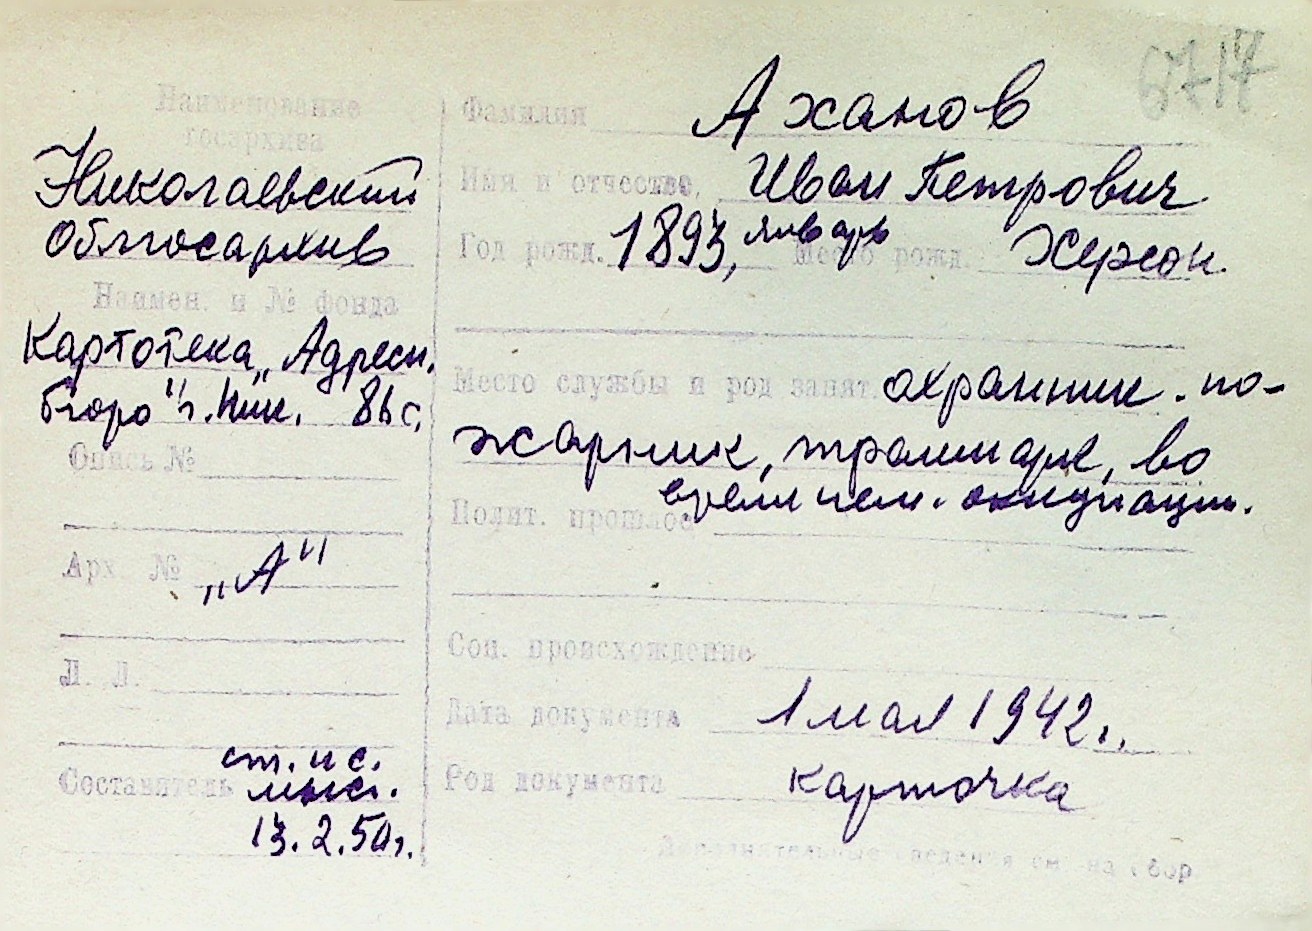 6717
Наименование
госархива
Николаевский
Облгосархив
Наимен. и № фонда
Картотека „Адресн.
бюро" г. Ник. 86 с.
Опись №
Арх. № „А"
Л. Л.
ст. и с.
Составитель
13.2.50г.
Фамилия Аханов
Имя и отчество, Иван Петрович
Год рожд. 1893, январь Место рожд. Херсон.
Место службы и род занят. охранник. по-
жарник, трампарк, во
время нем. оккупации.
Полит. прошлое
Соц. происхождение
Дата документа 1 мая 1942 г.
Род документа карточка
Дополнительные сведения см. на обор